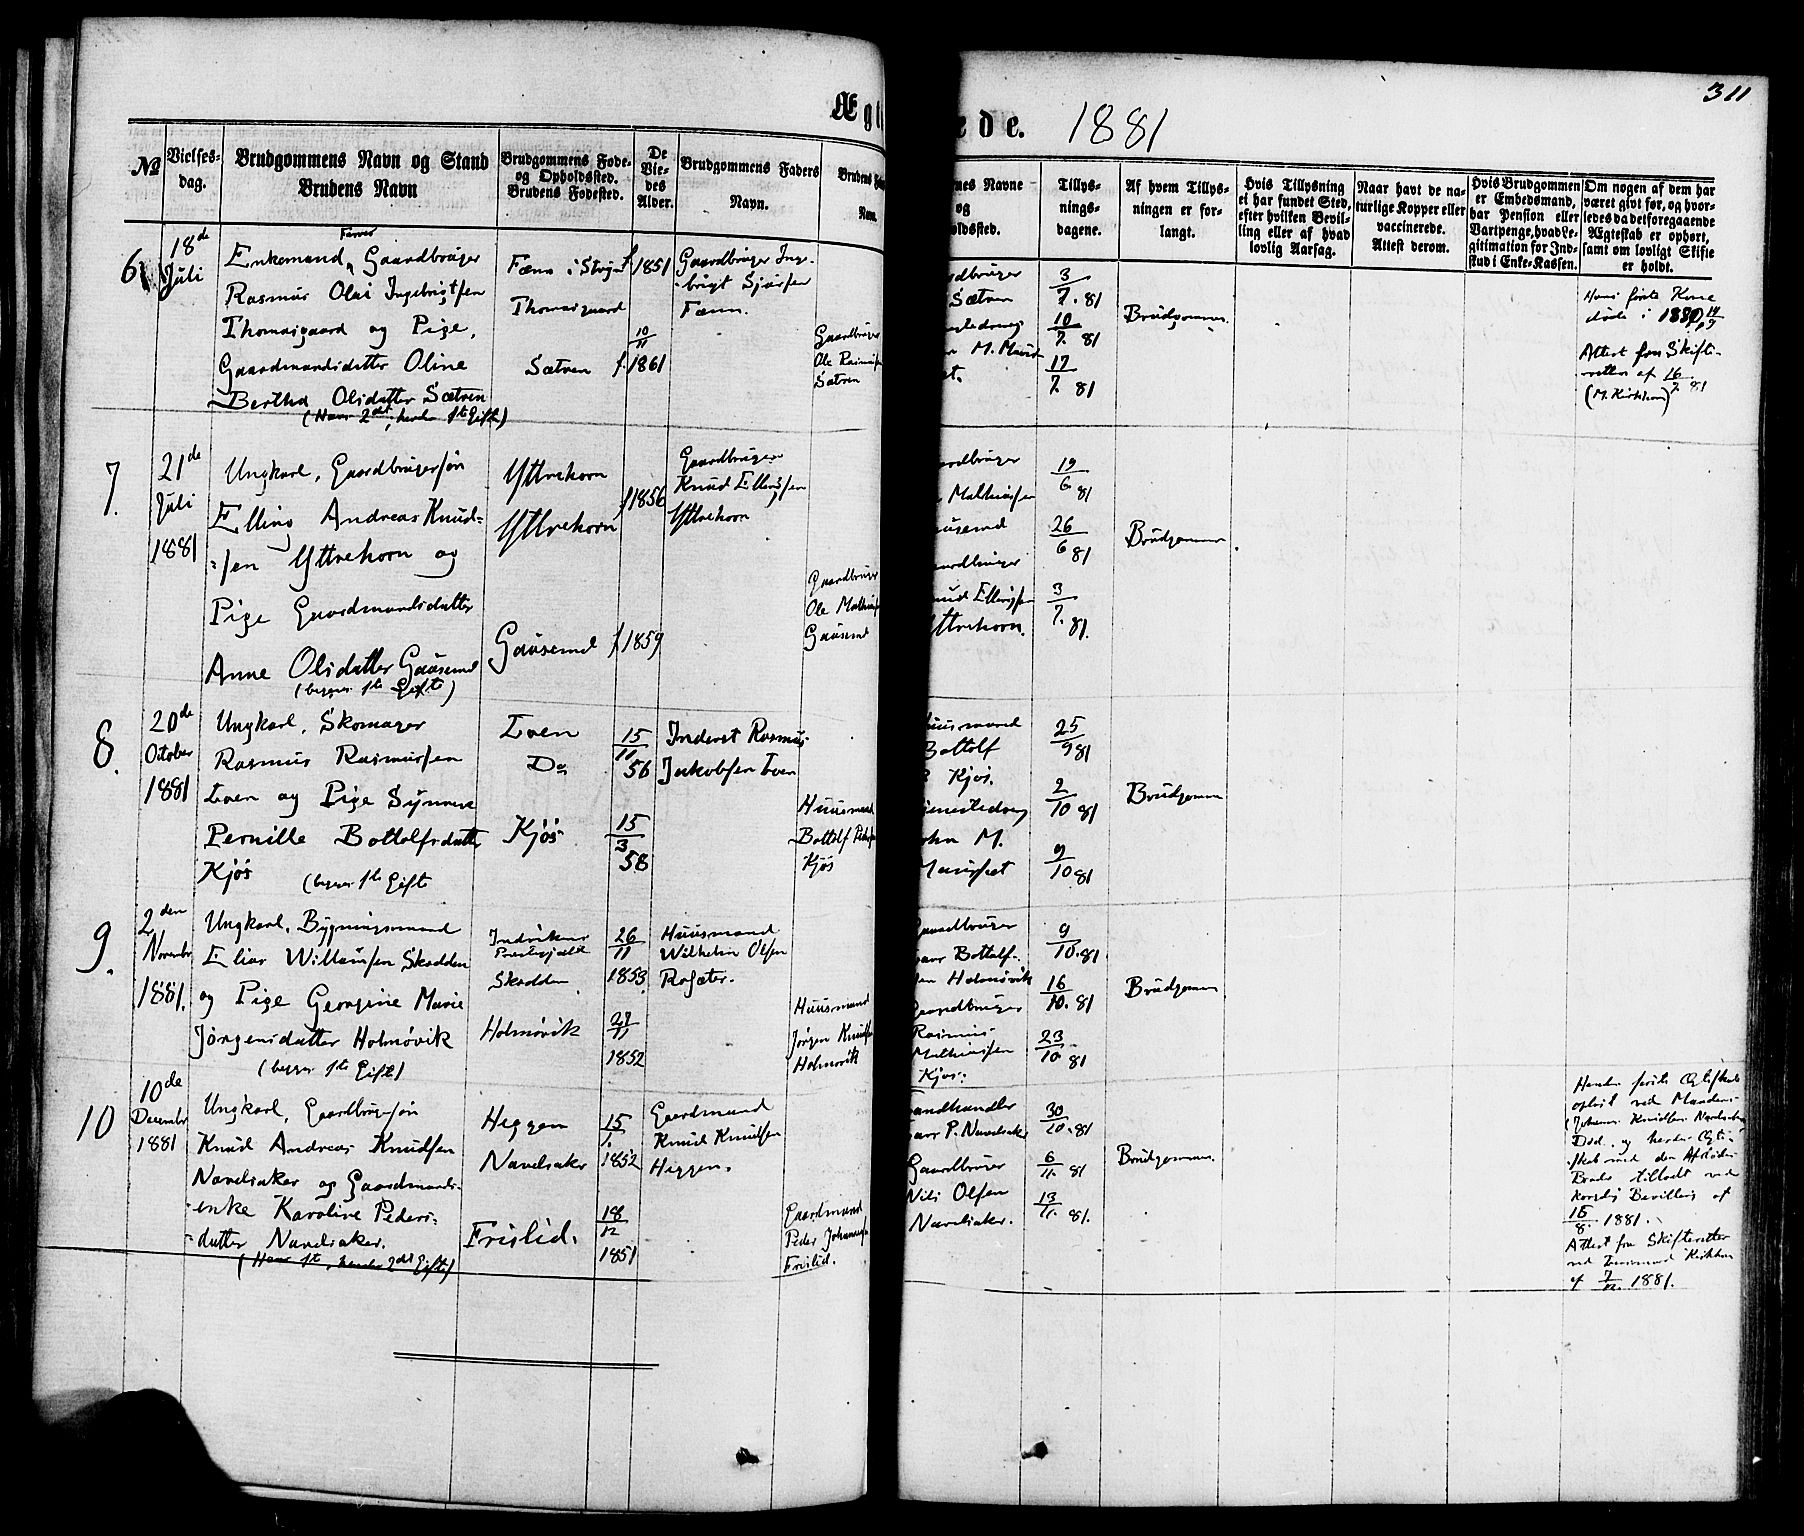 Ægt
ede. 1881
311
No
Vielses-
dag.
Brudgommens Navn og Stand
Brudens Navn
Brudgommens Føde-
og Opholdssted.
Brudens Fødested.
De
Vie-
des
Alder.
Brudgommens Faders
Navn.
Brudens
Nav
nes Navne
og
oldssted.
Tillys-
nings-
dagene.
Af hvem Tillys-
ningen er for-
langt.
Hvis Tillysning
ei har fundet Sted,
efter hvilken Bevil-
ling eller af hvad
lovlig Aarsag.
Naar havt de na-
turlige Kopper eller
vaccinerede.
Attest derom.
Hvis Brudgommen
er Embedsmand,
har Pension eller
Vartpenge, hvad Le-
gitimation for Ind-
skud i Enke-Kassen.
Om nogen af dem har
været gift før, og hvor-
ledes da det foregaaende
Ægteskab er ophørt,
samt om lovligt Skifte
er holdt.
6
18de
Juli
Enkemand, Gaardbruger
Rasmus Olai Ingebrigtsen
Thomasgaard og Pige,
Gaardmandsdatter Oline
Berthe Olsdatter Sætren
(Hans 2det, hendes 1te Gifte)
Thomasgaard
Sætren
f 1851
10/11
f. 1861
Gaardbruger Inge-
brigt
Gaardbruger
Ole Rasmussen
Sætren
rdbruger
Sætren
3/7. 81
10/7. 81
17/7. 81
Brudgommen
Hans første Kone
døde i 1880
Attest fra Skifte-
retten af 16/7 81
7.
21de
Juli
1881
Ungkarl, Gaardbrugersøn
Elling Andreas Knud-
sen Yttrehorn og
Pige Gaardmandsdatter
Anne Olsdatter Gausemel
(begges 1te Gifte)
Yttrehorn
Yttrehorn
Gausemel
f 1856
f 1859
Gaardbruger
Knud Ellingsen
Yttrehorn
Gaardbruger
Ole Mathias
Gausemel
ardbruger
Mathiassen
19/6. 81
26/6 81
3/7. 81.
Brudgommen
ardbruger
nud Ellingsen
ttrehorn.
8.
20de
October
1881
Ungkarl, Skomager
Rasmus Rasmussen
Loen og Pige Synneve
Pernille Bottolfsdatter
Kjøs (begges 1te Gifte
Loen
Do
Kjøs
15/11
56
15/3
58
Inderst Rasmus
Jakobsen Loen
Huusmand
Bottolf Peders
Kjøs
Huusmand
Bottolf
Kjøs.
John M.
25/9 81
2/10 81
9/10 81
Brudgommen
9.
2den
Novembr
1881.
Ungkarl, Bygningsmand
Elias Willumsen Skodden
og Pige Georgine Marie
Jørgensdatter Holmøvik
(begges 1te Gifte)
Indvikens
Præstegjeld
Skodden
Holmøvik
26/11
1853
1852
Huusmand
Wilhelm Olsen
Huusmand
Jørgen Knuds
Holmøvik
Gaardbruger
Bottolf-
sen Holmøvik
Gaardbruger
Rasmus
Mathiassen
Kjøs.
9/10. 81
16/10. 81
23/10 81
Brudgommen
10
10de
Decembr
1881
Ungkarl, Gaardbrugersøn
Knud Andreas Knudsen
Navelsaker og Gaardmands-
enke Karoline Peders-
datter Navelsaker.
(Hans 1te, hendes 2det Gifte)
Heggen
Navelsaker
Frislid.
15/1.
1852
18/12
1851
Gaardmand
Knud Knudsen
Heggen.
Gaardmand
Peder Johannes
Frislid.
Landhandler
Lars P. Navelsaker
Gaardbruger
Nils Olsen
Navelsaker.
30/10. 81
6/11. 81
13/11. 81.
Brudgommen.
Hendes første Ægteskab
opløst ved Mandens
Johannes Knudsen Navelsaker
Død, og hendes Ægte-
skab med den Afdødes
Broder tilladt ved
kongelig Bevilling af
15/8. 1881.
Attest fra Skifteretten
ved Lensmand Kirkhorn
af 7/12. 1881.